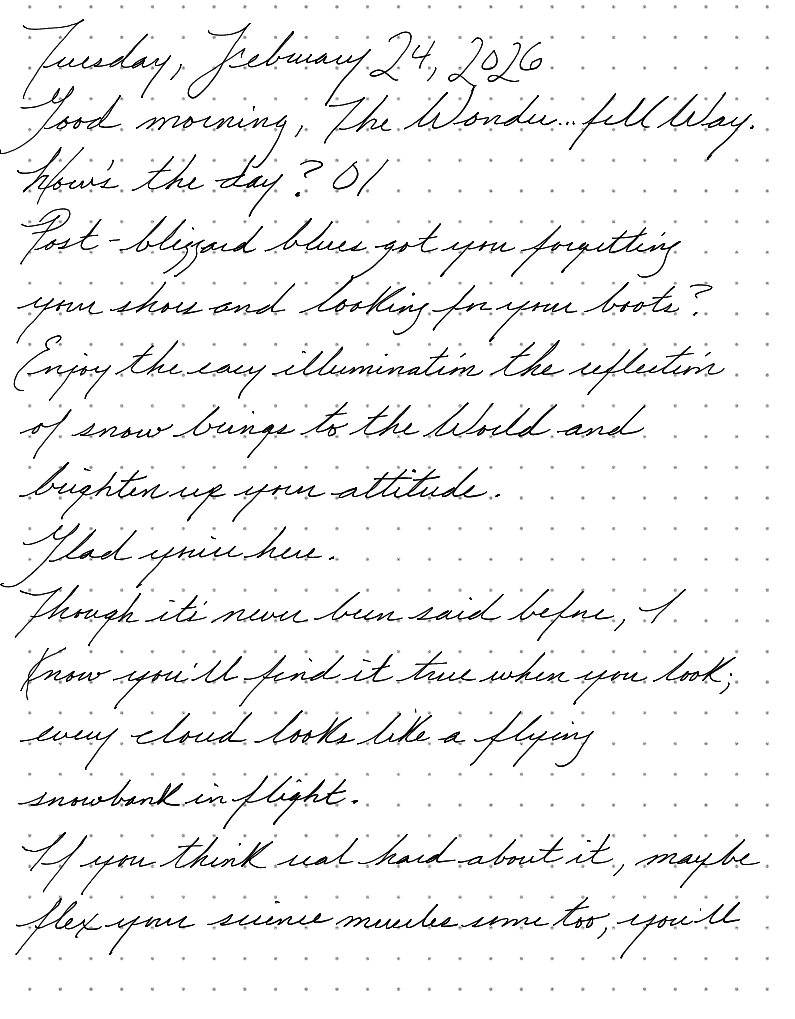 Tuesday, February 24, 2026
Good morning, The Wonder...full Way.
How's the day? 01
Post-blizzard blues got you forgetting
your shoes and looking for your boots?
Enjoy the easy illumination the reflection
of snow brings to the World and
brighten up your attitude.
Glad you're here.
Though it's never been said before, I
know you'll find it true when you look;
every cloud looks like a flying
snowbank in flight.
If you think real hard about it, maybe
flex your science muscles some too, you'll